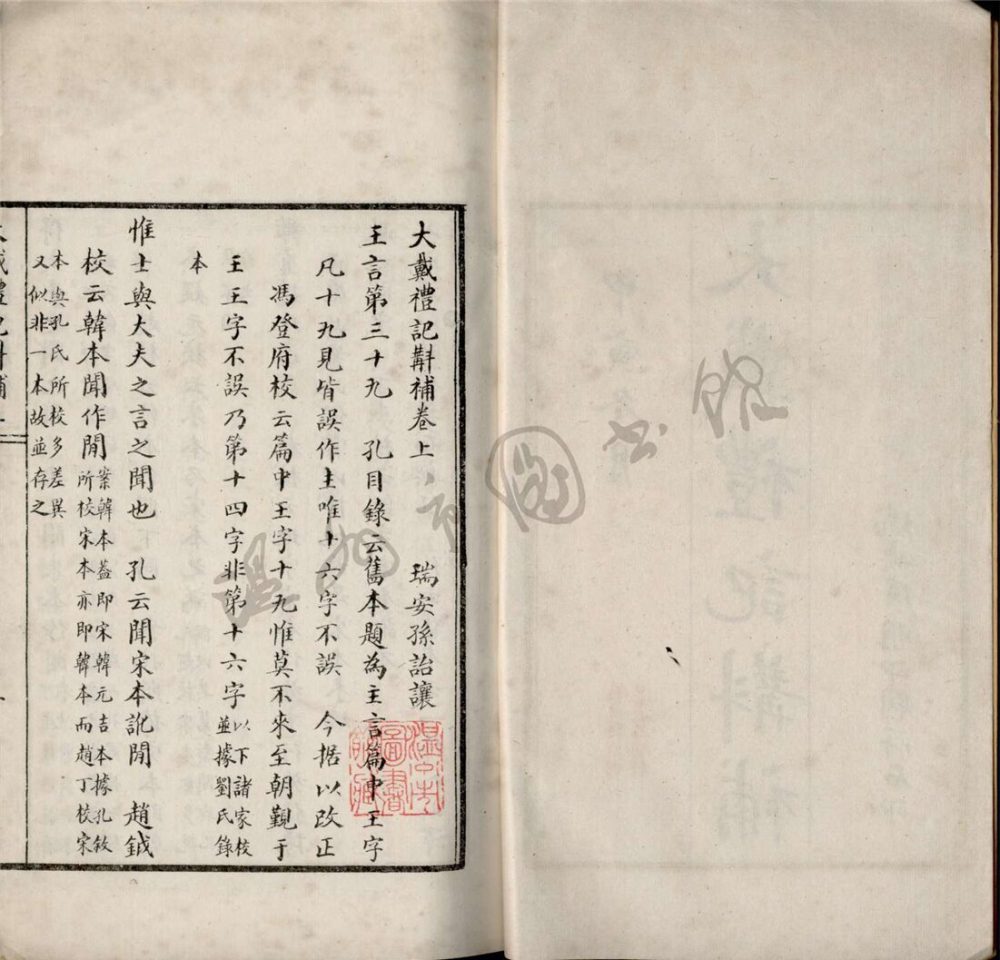 大戴禮記斠補卷上 瑞安孫詒讓
王言第三十九 孔目錄云舊本題為主言篇中王字
凡十九見皆誤作主唯十六字不誤 今据以改正
馮登府校云篇中王字十九惟莫不來至朝覲于
王王字不誤乃第十四字非第十六字 以下諸家校
並據劉氏錄
本
惟士與大夫之言之聞也 孔云聞宋本訛閒 趙鉞
校云韓本聞作閒 案韓本葢即宋韓元吉本據孔敘
所校宋本亦即韓本而趙丁校宋
本與孔氏所校多差異
又似非一本故並存之
大戴禮記斠補上
溫州市
圖書
館藏
溫州市圖书館
大戴禮記斠補